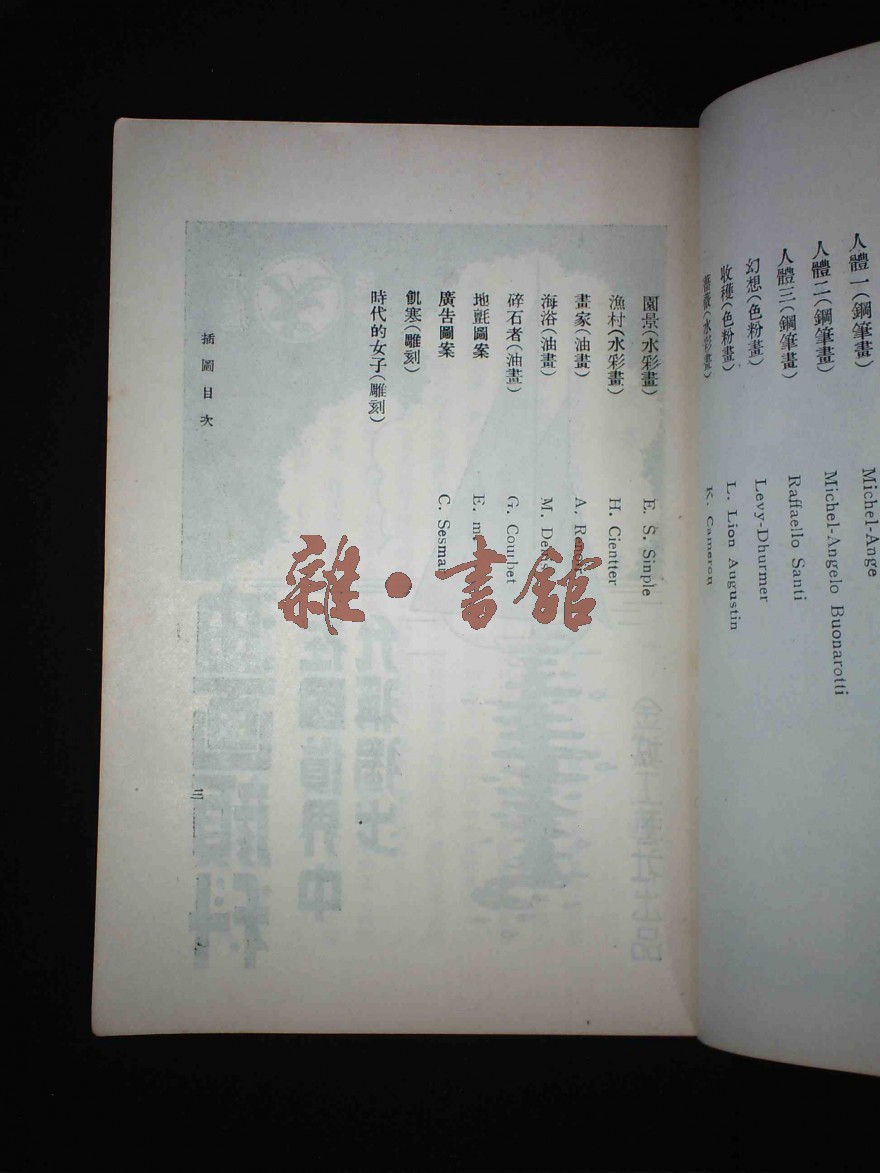 人體一(鋼筆畫) Michel-Ange
人體二(鋼筆畫) Michel-Angelo Buonarotti
人體三(鋼筆畫) Raffaello Santi
幻想(色粉畫) Levy-Dhurmer
收穫(色粉畫) L. Lion Augustin
薔薇(水彩畫) K. Cameron
園景(水彩畫) E. S. Simple
漁村(水彩畫) H. Cientter
畫家(油畫) A. Renoir
海浴(油畫) M. Denis
碎石者(油畫) G. Courbet
地氈圖案 E. m.
廣告圖案 C. Sesmar
飢寒(雕刻)
時代的女子(雕刻)
插圖目次
三
雜·書館